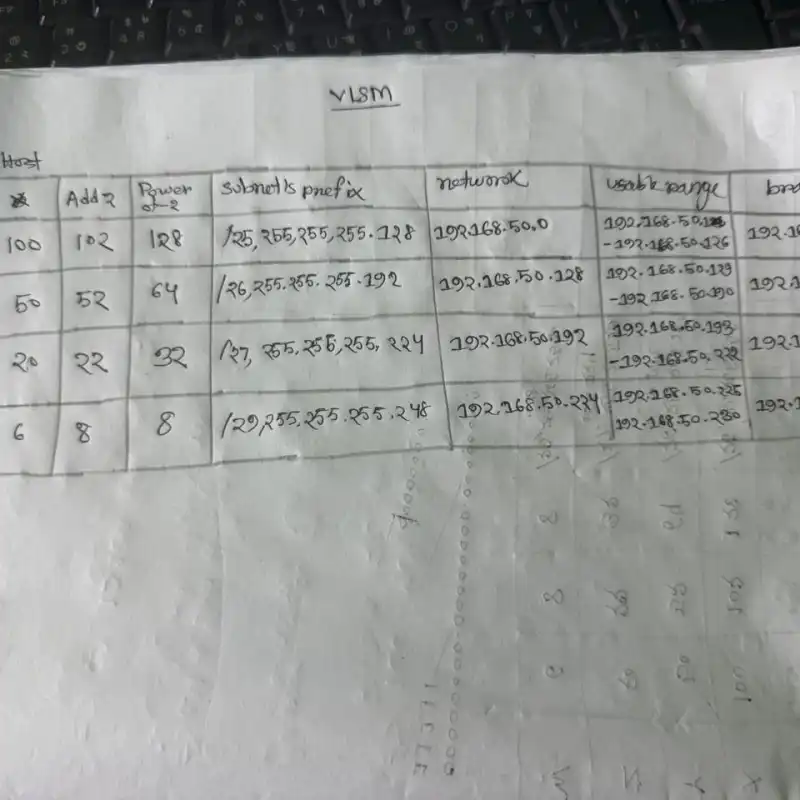 VLSM
Host
Add 2 Power of 2 Subnet/s prefix network usable range
100 102 128 /25, 255, 255, 255.128 192.168.50.0 192.168.50.1
-192.168.50.126 192.16
50 52 64 /26, 255.255.255.192 192.168.50.128 192.168.50.129
-192.168.50.190 192.1
20 22 32 /27, 255.255, 255, 224 192.168.50.192 192.168.50.193
-192.168.50.222 192.1
6 8 8 /29, 255.255.255.248 192.168.50.224 192.168.50.225
192.168.50.230 192.1